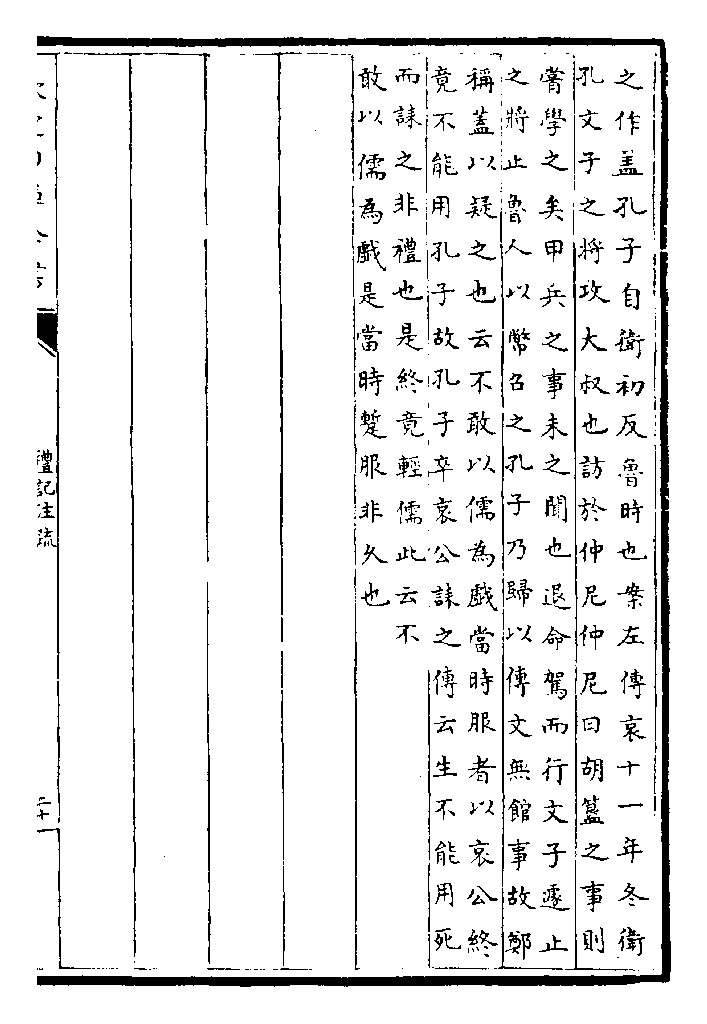 之作盖孔子自衛初反魯時也案左傳哀十一年冬衛
孔文子之將攻大叔也訪於仲尼仲尼曰胡簋之事則
嘗學之矣甲兵之事未之聞也退命駕而行文子遽止
之將止魯人以幣召之孔子乃歸以傳文無館事故鄭
稱蓋以疑之也云不敢以儒為戲當時服者以哀公終
竟不能用孔子故孔子卒哀公誄之傳云生不能用死
而誄之非禮也是終竟輕儒此云不
敢以儒為戲是當時蹔服非久也
禮記注疏
二十